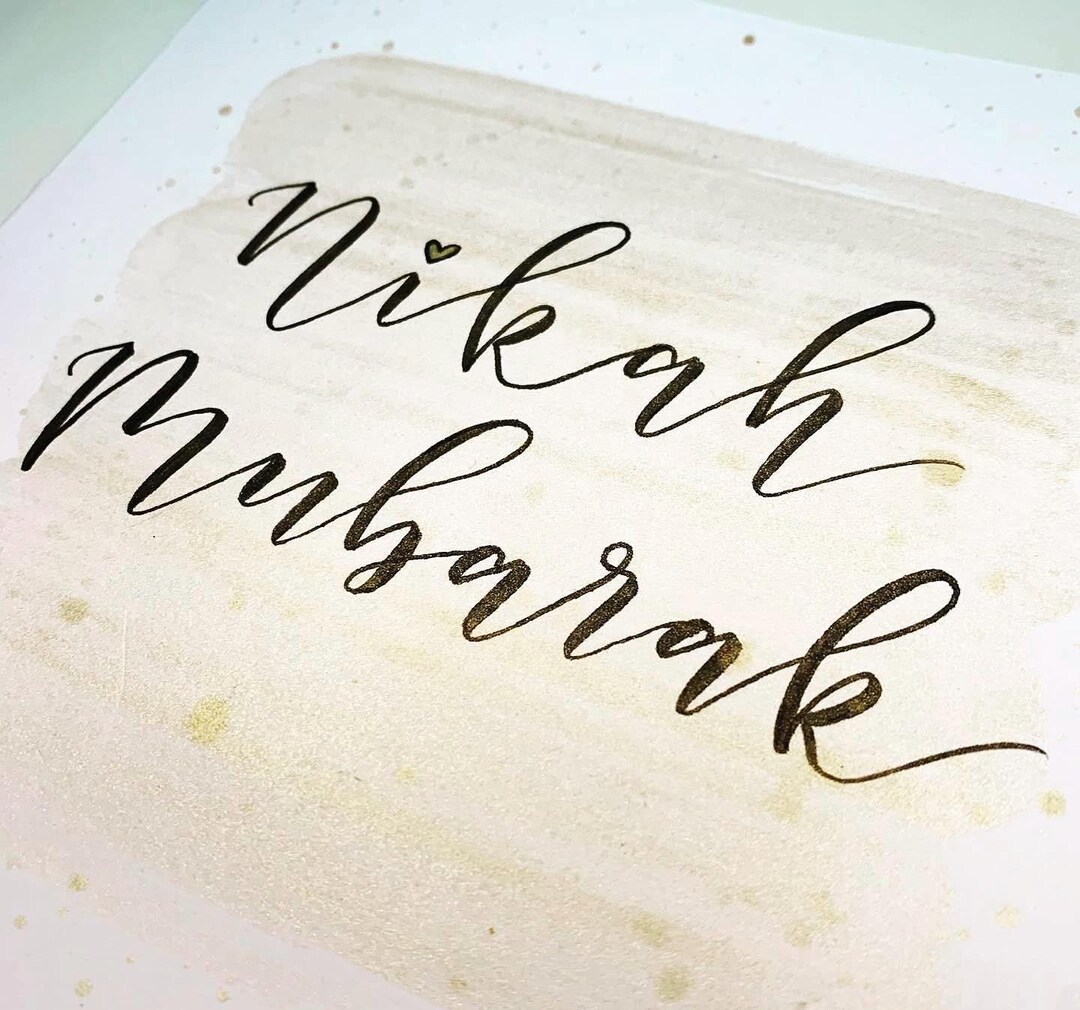 Nikah
Mubarak